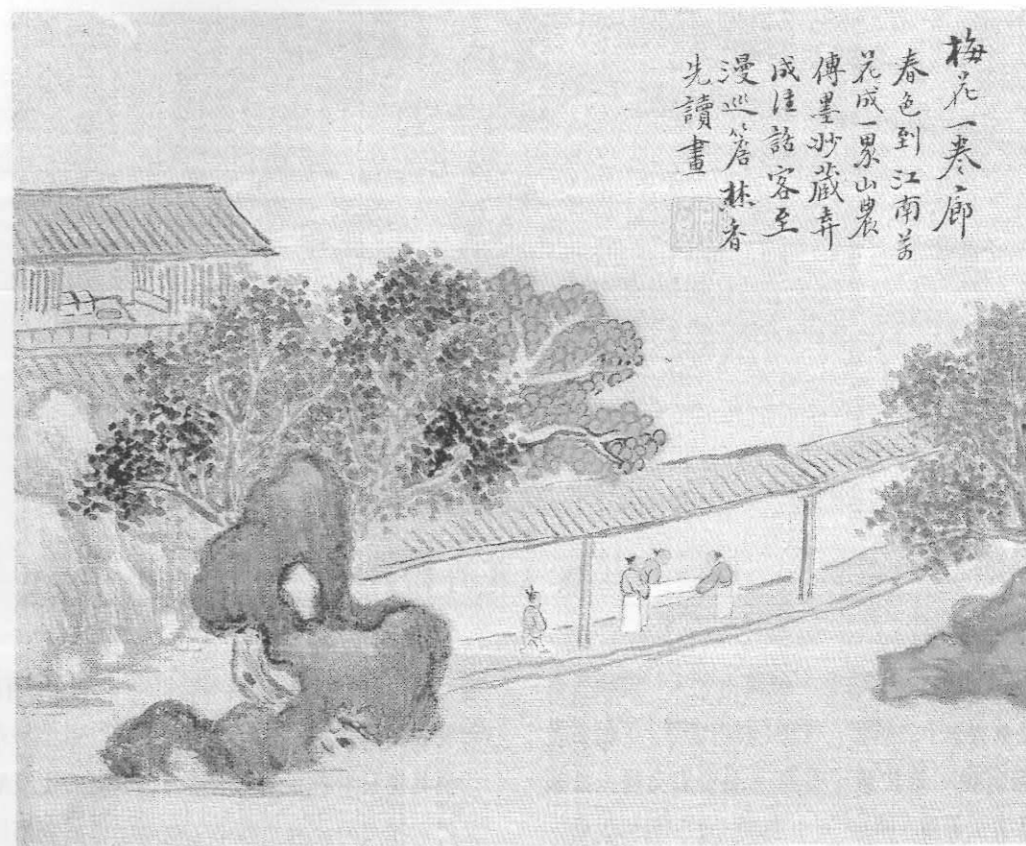 梅花一卷廊
春色到江南万
花成一界山農
傳墨妙藏弆
成佳話客至
漫巡簷楳香
先讀畫